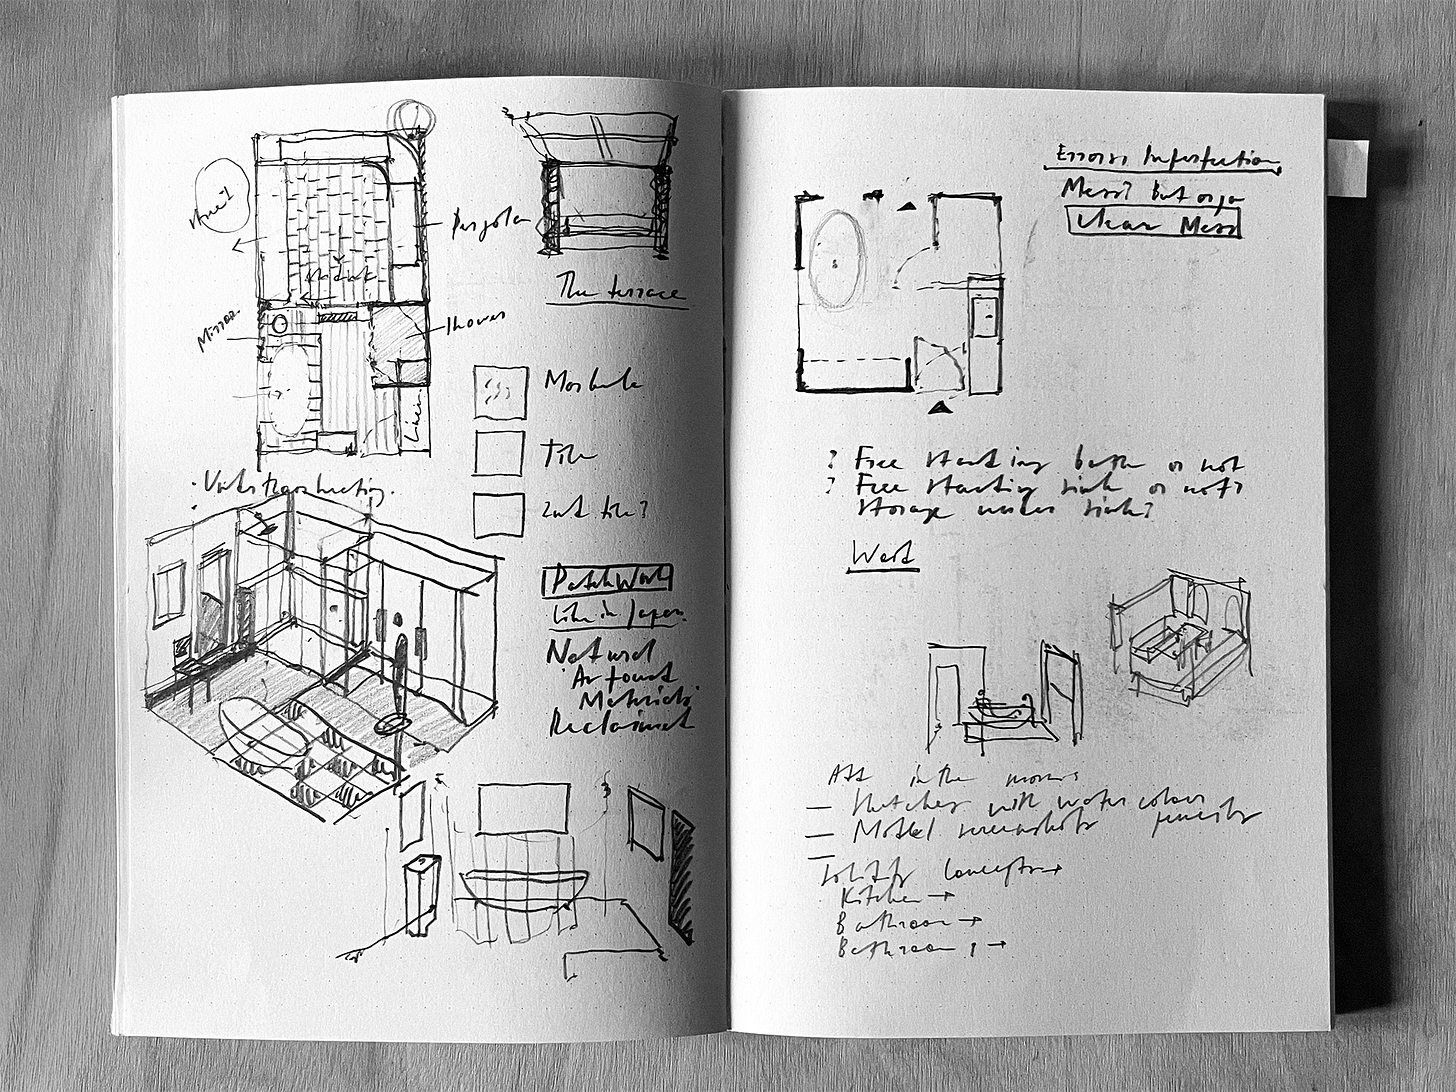 Pergola
Mirror
Shower
Linen
The terrace
Tile
2nd tile?
Patchwork
Like in Japan
Natural
Around
Materials
Reclaimed
Errors Imperfection
Mess? But orga
Clear Mess
? Free standing bath or not
? Free standing sink or not?
Storage under sink?
West
in the
— Sketches with watercolour
— Model screenshots pencils
—
Solidify Concepts →
Kitchen →
Bathroom →
Bathroom →